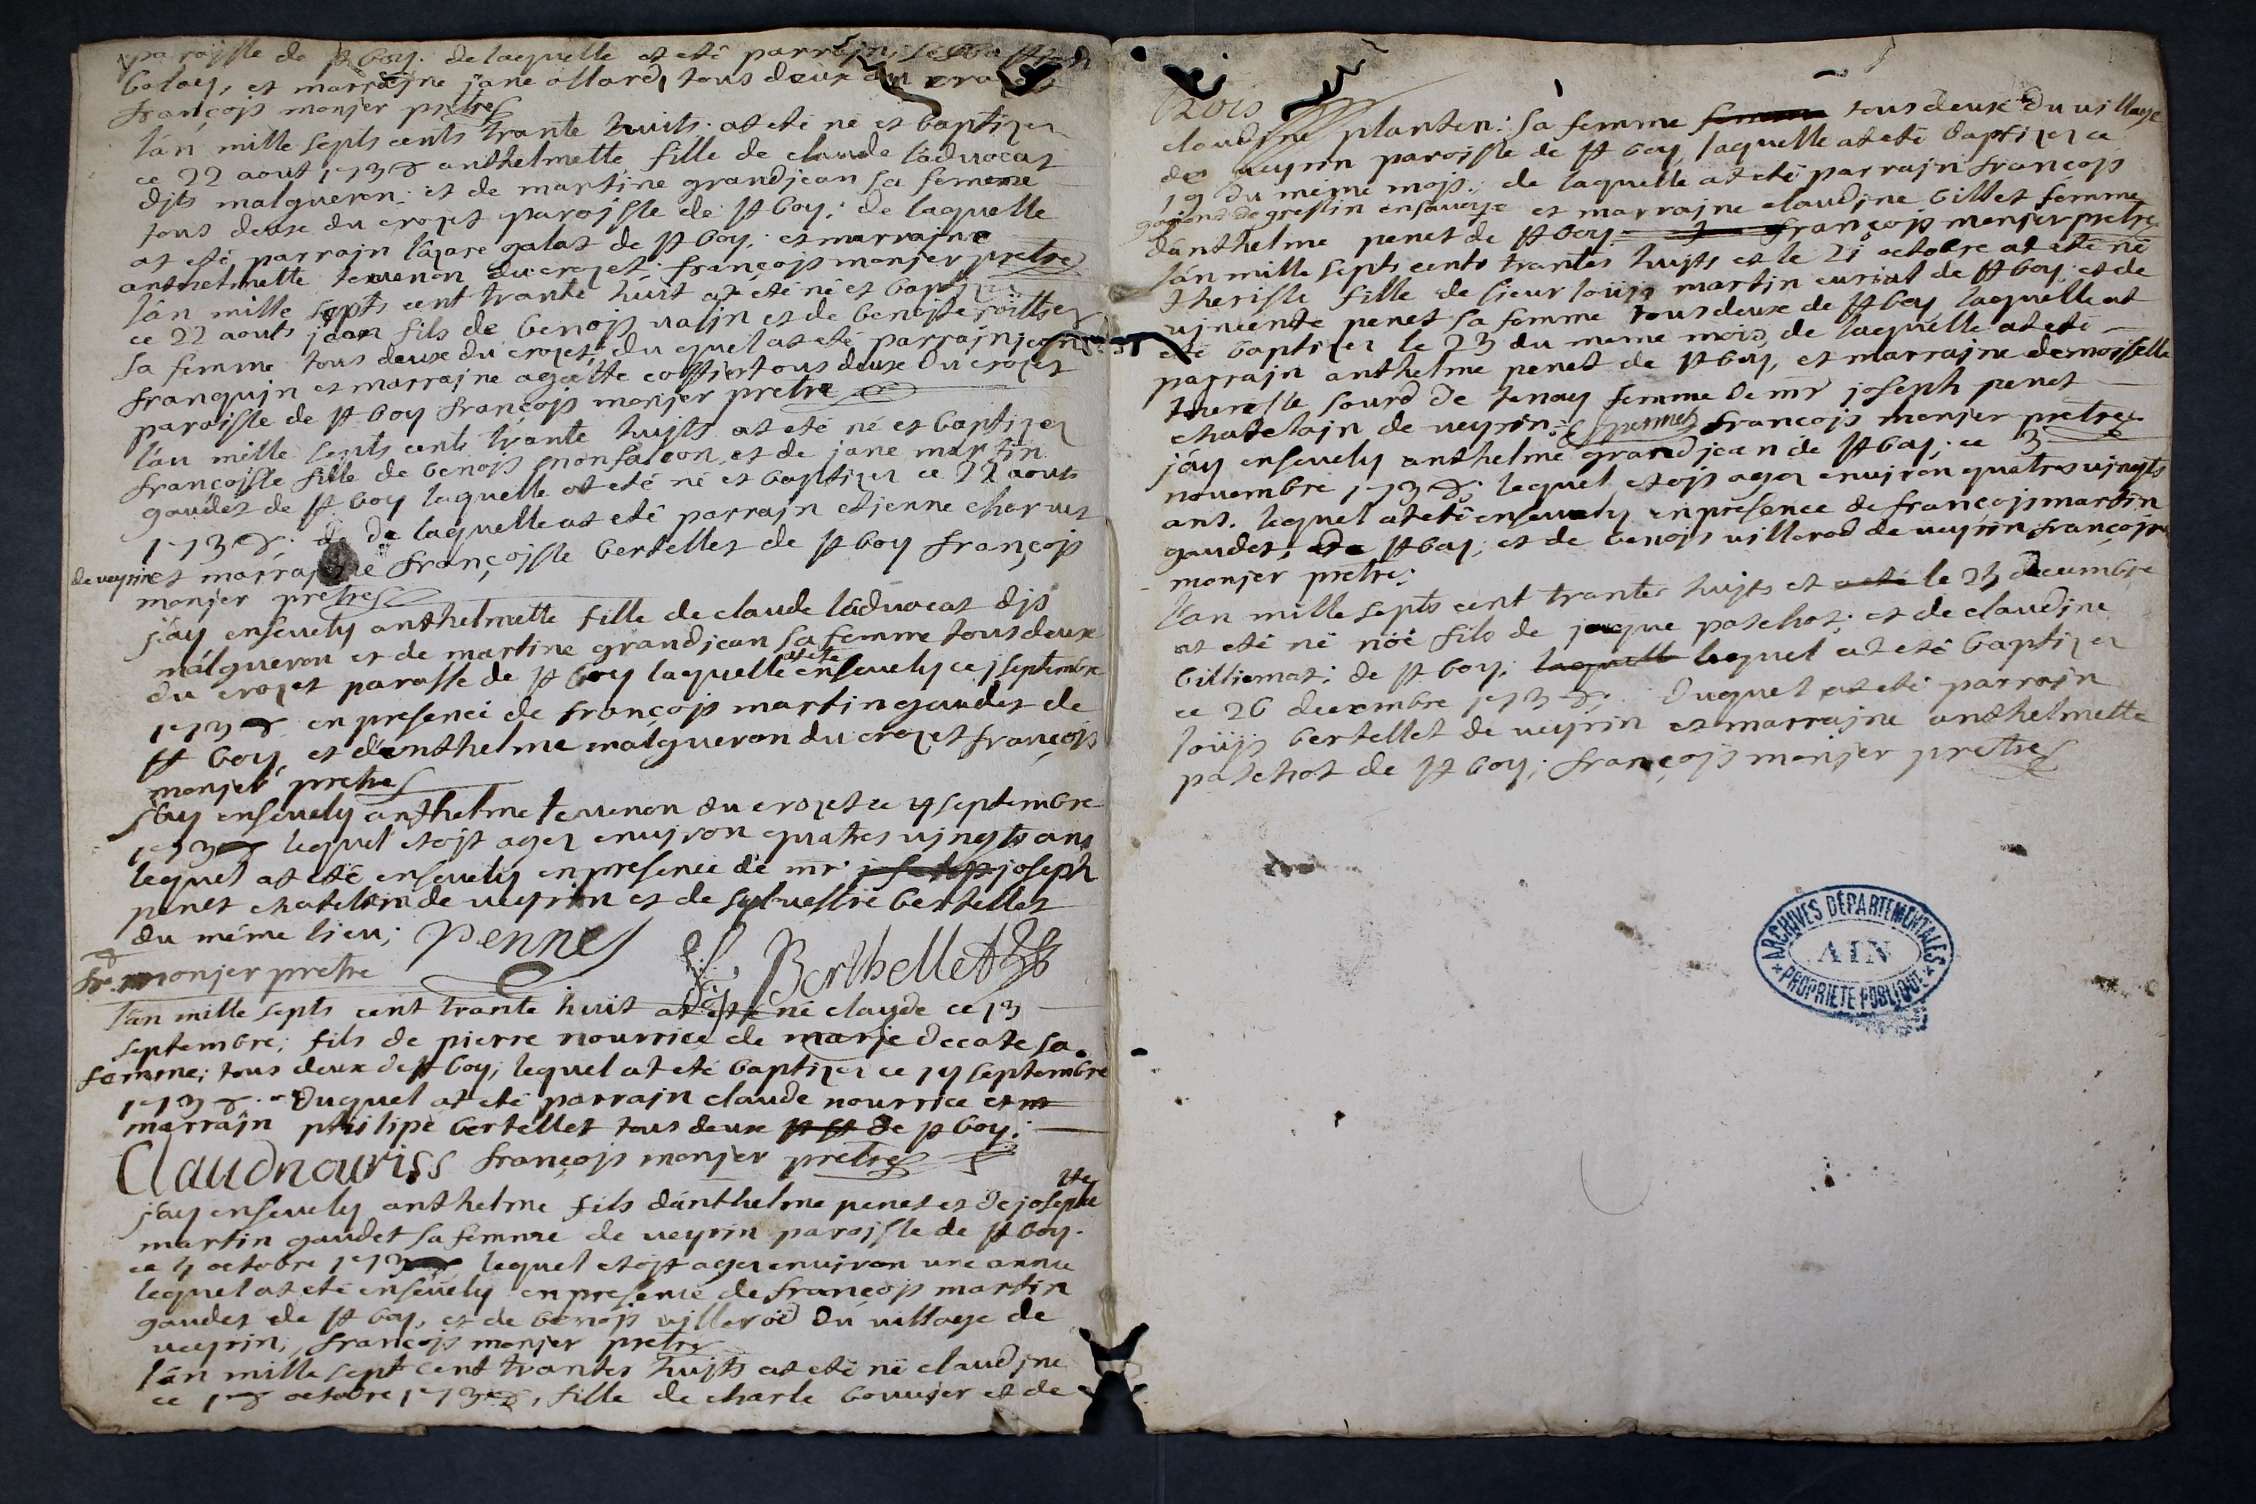 paroisse de st boy. de laquelle at eté parrajn
bolay, et marrajne jane allard, tous deux du
françojs monjer prêtre
l'án mille septs cents trante huits. at eté né et baptizer
ce 22 aout 1738 anthelmette fille de claude ládvocat
djts malgueron. et de martine grandjean sa femme
tous deux du crozet parojsse de st boy; de laquelle
at eté parrajn lázare galat de st boy; et marrajne
anthelmette tevenon du crozet; françojs monjer pretre
l'án mille septs cent trante huit at eté né et baptizer
ce 22 aouts jean fils de benojs valjn et de benojste
sa femme tous deux du crozet, du quel at eté parrajn jean
franquin et marrajne agatte costier tous deux du crozet
paroisse de st boy françojs monjer pretre
l'án mille septs cents trante hujts at eté né et baptizer
françojsse fille de benojs monfalcon, et de jane martin
gaudet de st boy laquelle at eté né et baptizer ce 22 aouts
1738; de laquelle at eté parrajn etjenne charvet
de veyrin et marrajne françojsse bertellet de st boy françojs
monjer pretre
j'áy ensevely anthelmette fille de claude ládvocat djs
málgueron et de martine grandjean sa femme tous deux
du crozet parosse de st boy laquelle at eté ensevely ce j septembre
1738 en presencé de françojs martin gaudet de
st boy, et d'anthelme malgueron du crozet françojs
monjer pretre
j'ay ensevely anthelme tevenon du crozet ce 4 septembre
1738 lequel etojt agez envjron quatres vjngts ans
lequel at eté ensevely en presence de mr joseph
penet chatelain de veyrin et de sylvestre bertellet
du même lieu; Pennet
fr. monjer pretre Berthellet
l'án mille septs cent trante huit at eté né claude ce 13
septembre; fils de pierre nourrice de marje decote sa
femme; tous deux de st boy; lequel at eté baptizer ce 14 septembre
1738. Duquel at eté parrajn claude nourrice et
marrájn philipe bertellet tous deux de st boy;
Claudnouriss françojs monjer pretre
j'áy ensevely anthelme fils dánthelme penet et de josephte
martin gaudet sa femme de veyrin parojsse de st boy.
ce 4 octobre 1738 lequel etojt agez environ une annee
lequel at eté ensevely en presence de françojs martin
gaudet de st boy, et de benojs villerod du village de
veyrin, françojs monjer pretre
l'án mille sept cent trantes hujts at eté né claudjne
ce 18 octobre 1738, fille de charle bouvjer et de
trois
claudjne planten: sa femme tous deux du village
de veyrin paroisse de st boy, laquelle at eté baptizer ce
19 du méme mojs; de laquelle at eté parrajn françojs
de greslin en savoye et marrajne claudjne billiet femme
dánthelme penet de st boy. françojs monjer pretre
l'án mille septs cents trantes hujts et le 21 octobre at eté né
therisse fille de sieur loüjs martin curiat de st boy; et de
vjncente penet sa femme tous deux de st boy laquelle at
eté baptizer le 23 du meme mois, de laquelle at eté
parrajn anthelme penet de st boy, et marrajne demoiselle
teresse sourd de tenay femme de mr joseph penet
chatelajn de veyrin. Pennet françojs monjer pretre
j'áy ensevely anthelme grandjean de st boy; ce 3
novembre 1738; lequel etojs agez environ quatres vjngts
ans. lequel at eté ensevely en présence de françojs martin
gaudet, de st boy; et de benojs villerod de veyrin françojs
monjer pretre;
l'an mille septs cent trantes hujts et le 25 decembre
at eté né nöé fils de jacque patchot; et de claudjne
billiemat; de st boy; lequel at eté baptizer
ce 26 decembre 1738. Duquel at eté parrajn
loüjs bertellet de veyrin et marrajne anthelmette
patchot de st boy; françojs monjer pretre
ARCHIVES DÉPARTEMENTALES
AIN
PROPRIÉTÉ PUBLIQUE